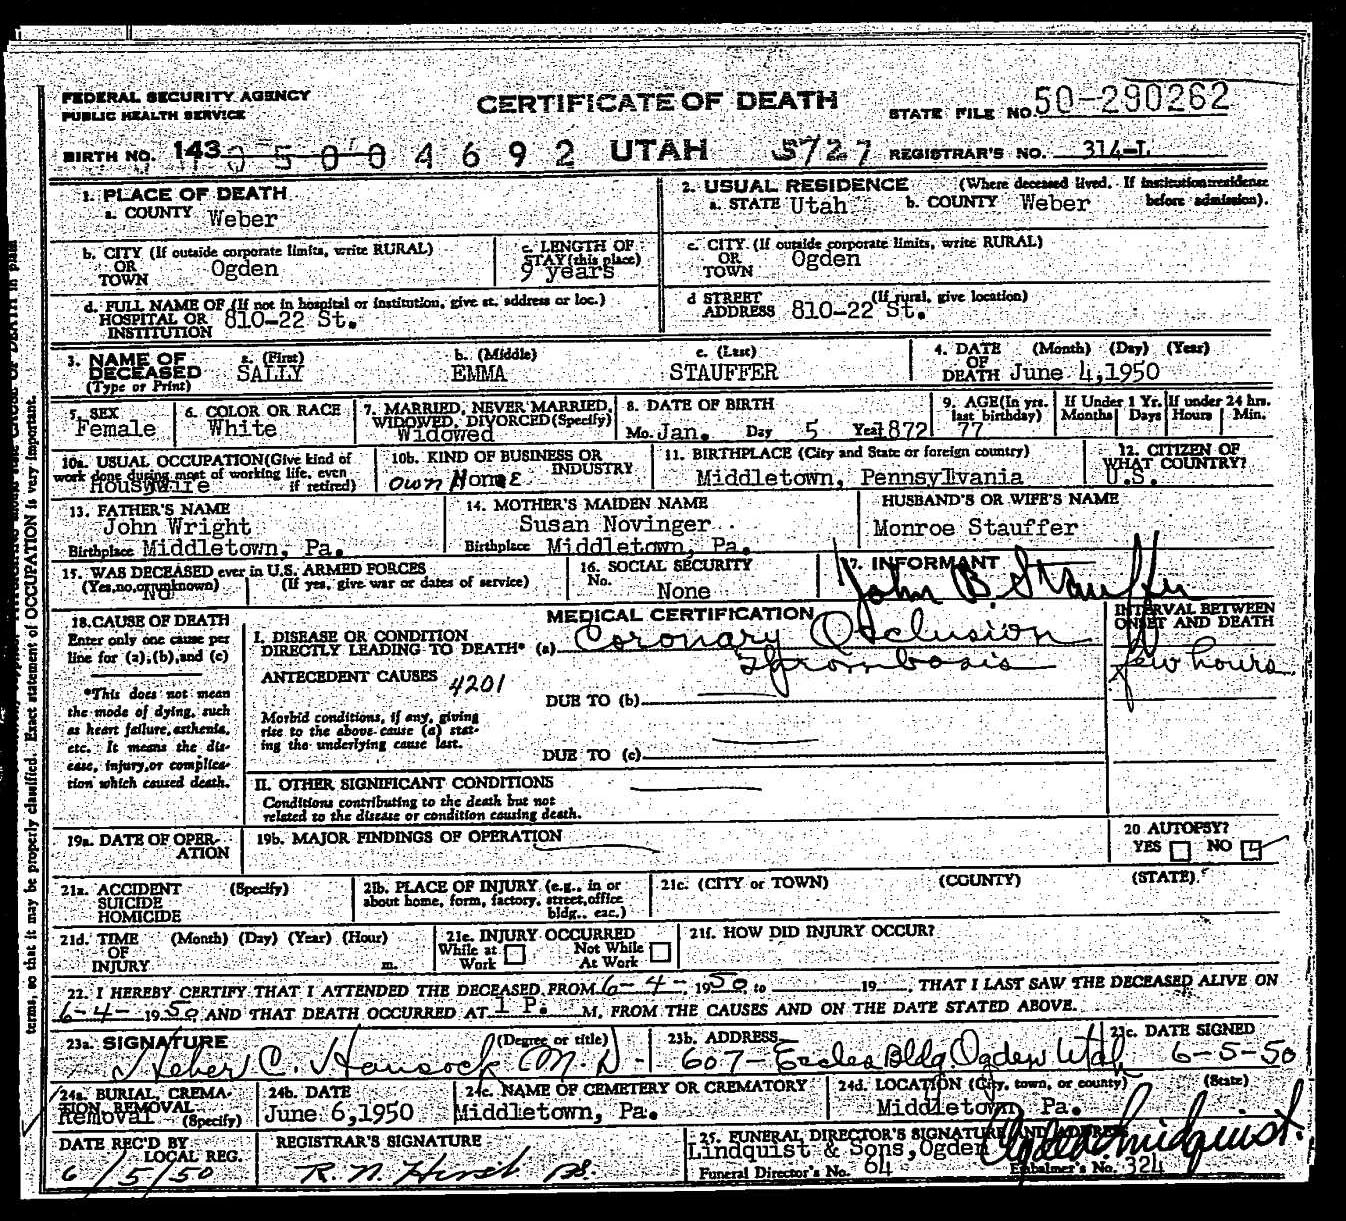 FEDERAL SECURITY AGENCY
PUBLIC HEALTH SERVICE
CERTIFICATE OF DEATH
STATE FILE NO. 50-290262
BIRTH NO. 143 0 5 0 0 4 6 9 2 UTAH 5727 REGISTRAR'S NO. 314-L
1. PLACE OF DEATH
a. COUNTY Weber
2. USUAL RESIDENCE (Where deceased lived. If institution: residence before admission).
a. STATE Utah b. COUNTY Weber
b. CITY (If outside corporate limits, write RURAL)
OR TOWN Ogden
c. LENGTH OF STAY (this place)
9 years
c. CITY (If outside corporate limits, write RURAL)
OR TOWN Ogden
d. FULL NAME OF (If not in hospital or institution, give st. address or loc.)
HOSPITAL OR INSTITUTION 810-22 St.
d STREET ADDRESS (If rural, give location)
810-22 St.
3. NAME OF DECEASED (Type or Print)
a. (First) SALLY
b. (Middle) EMMA
c. (Last) STAUFFER
4. DATE OF DEATH (Month) (Day) (Year)
June 4,1950
5. SEX
Female
6. COLOR OR RACE
White
7. MARRIED, NEVER MARRIED, WIDOWED, DIVORCED (Specify)
Widowed
8. DATE OF BIRTH
Mo. Jan. Day 5 Year 1872
9. AGE (In yrs. last birthday)
77
If Under 1 Yr. Months Days
If under 24 hrs. Hours Min.
10a. USUAL OCCUPATION (Give kind of work done during most of working life, even if retired)
10b. KIND OF BUSINESS OR INDUSTRY
own Home
11. BIRTHPLACE (City and State or foreign country)
Middletown, Pennsylvania
12. CITIZEN OF WHAT COUNTRY?
U.S.
13. FATHER'S NAME
John Wright
Birthplace Middletown, Pa.
14. MOTHER'S MAIDEN NAME
Susan Novinger
Birthplace Middletown, Pa.
HUSBAND'S OR WIFE'S NAME
Monroe Stauffer
15. WAS DECEASED ever in U.S. ARMED FORCES
(Yes, no, or unknown) (If yes, give war or dates of service)
No
16. SOCIAL SECURITY No.
None
17. INFORMANT
John B. Stauffer
18. CAUSE OF DEATH
Enter only one cause per line for (a), (b), and (c)
*This does not mean the mode of dying, such as heart failure, asthenia, etc. It means the disease, injury, or complication which caused death.
MEDICAL CERTIFICATION
I. DISEASE OR CONDITION DIRECTLY LEADING TO DEATH* (a) Coronary Occlusion
Thrombosis
INTERVAL BETWEEN ONSET AND DEATH
few hours
ANTECEDENT CAUSES 4201
DUE TO (b)
Morbid conditions, if any, giving rise to the above cause (a) stating the underlying cause last.
DUE TO (c)
II. OTHER SIGNIFICANT CONDITIONS
Conditions contributing to the death but not related to the disease or condition causing death.
19a. DATE OF OPERATION
19b. MAJOR FINDINGS OF OPERATION
20 AUTOPSY?
YES NO
21a. ACCIDENT SUICIDE HOMICIDE (Specify)
21b. PLACE OF INJURY (e.g., in or about home, form, factory, street, office bldg., eac.)
21c. (CITY or TOWN) (COUNTY) (STATE)
21d. TIME OF INJURY (Month) (Day) (Year) (Hour) m.
21e. INJURY OCCURRED
While at Work Not While At Work
21f. HOW DID INJURY OCCUR?
22. I HEREBY CERTIFY THAT I ATTENDED THE DECEASED FROM 6-4- 1950 to 19 , THAT I LAST SAW THE DECEASED ALIVE ON
6-4- 1950, AND THAT DEATH OCCURRED AT 1 P. M, FROM THE CAUSES AND ON THE DATE STATED ABOVE.
23a. SIGNATURE (Degree or title)
Heber C. Hancock M.D.
23b. ADDRESS
607-Eccles Bldg. Ogden Utah
23c. DATE SIGNED
6-5-50
24a. BURIAL, CREMATION, REMOVAL (Specify)
Removal
24b. DATE
June 6,1950
24c. NAME OF CEMETERY OR CREMATORY
Middletown, Pa.
24d. LOCATION (City, town, or county) (State)
Middletown, Pa.
DATE REC'D BY LOCAL REG.
6/5/50
REGISTRAR'S SIGNATURE
R. N. Hirst
25. FUNERAL DIRECTOR'S SIGNATURE AND ADDRESS
Lindquist & Sons, Ogden
Lindquist.
Funeral Director's No. 64 Embalmer's No. 324
terms, so that it may be properly classified. Exact statement of OCCUPATION is very important.